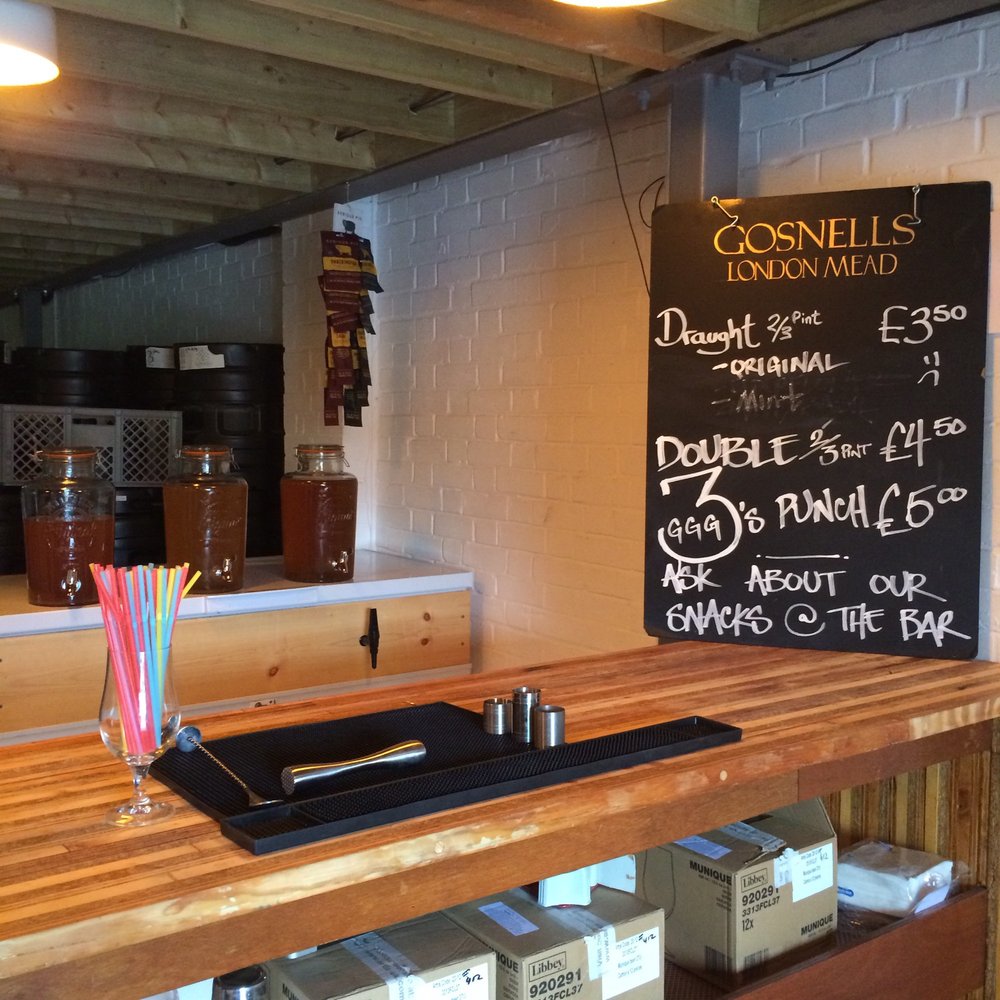 GOSNELLS
LONDON MEAD
Draught 2/3 Pint £3.50
-ORIGINAL
-Mint
DOUBLE 2/3 PINT £4.50
3 GGG's PUNCH £5.00
ASK ABOUT OUR
SNACKS @ THE BAR
MUNIQUE
Libbey
920291
3313FCL37
12x
MUNIQUE
Libbey
920291
3313FCL37